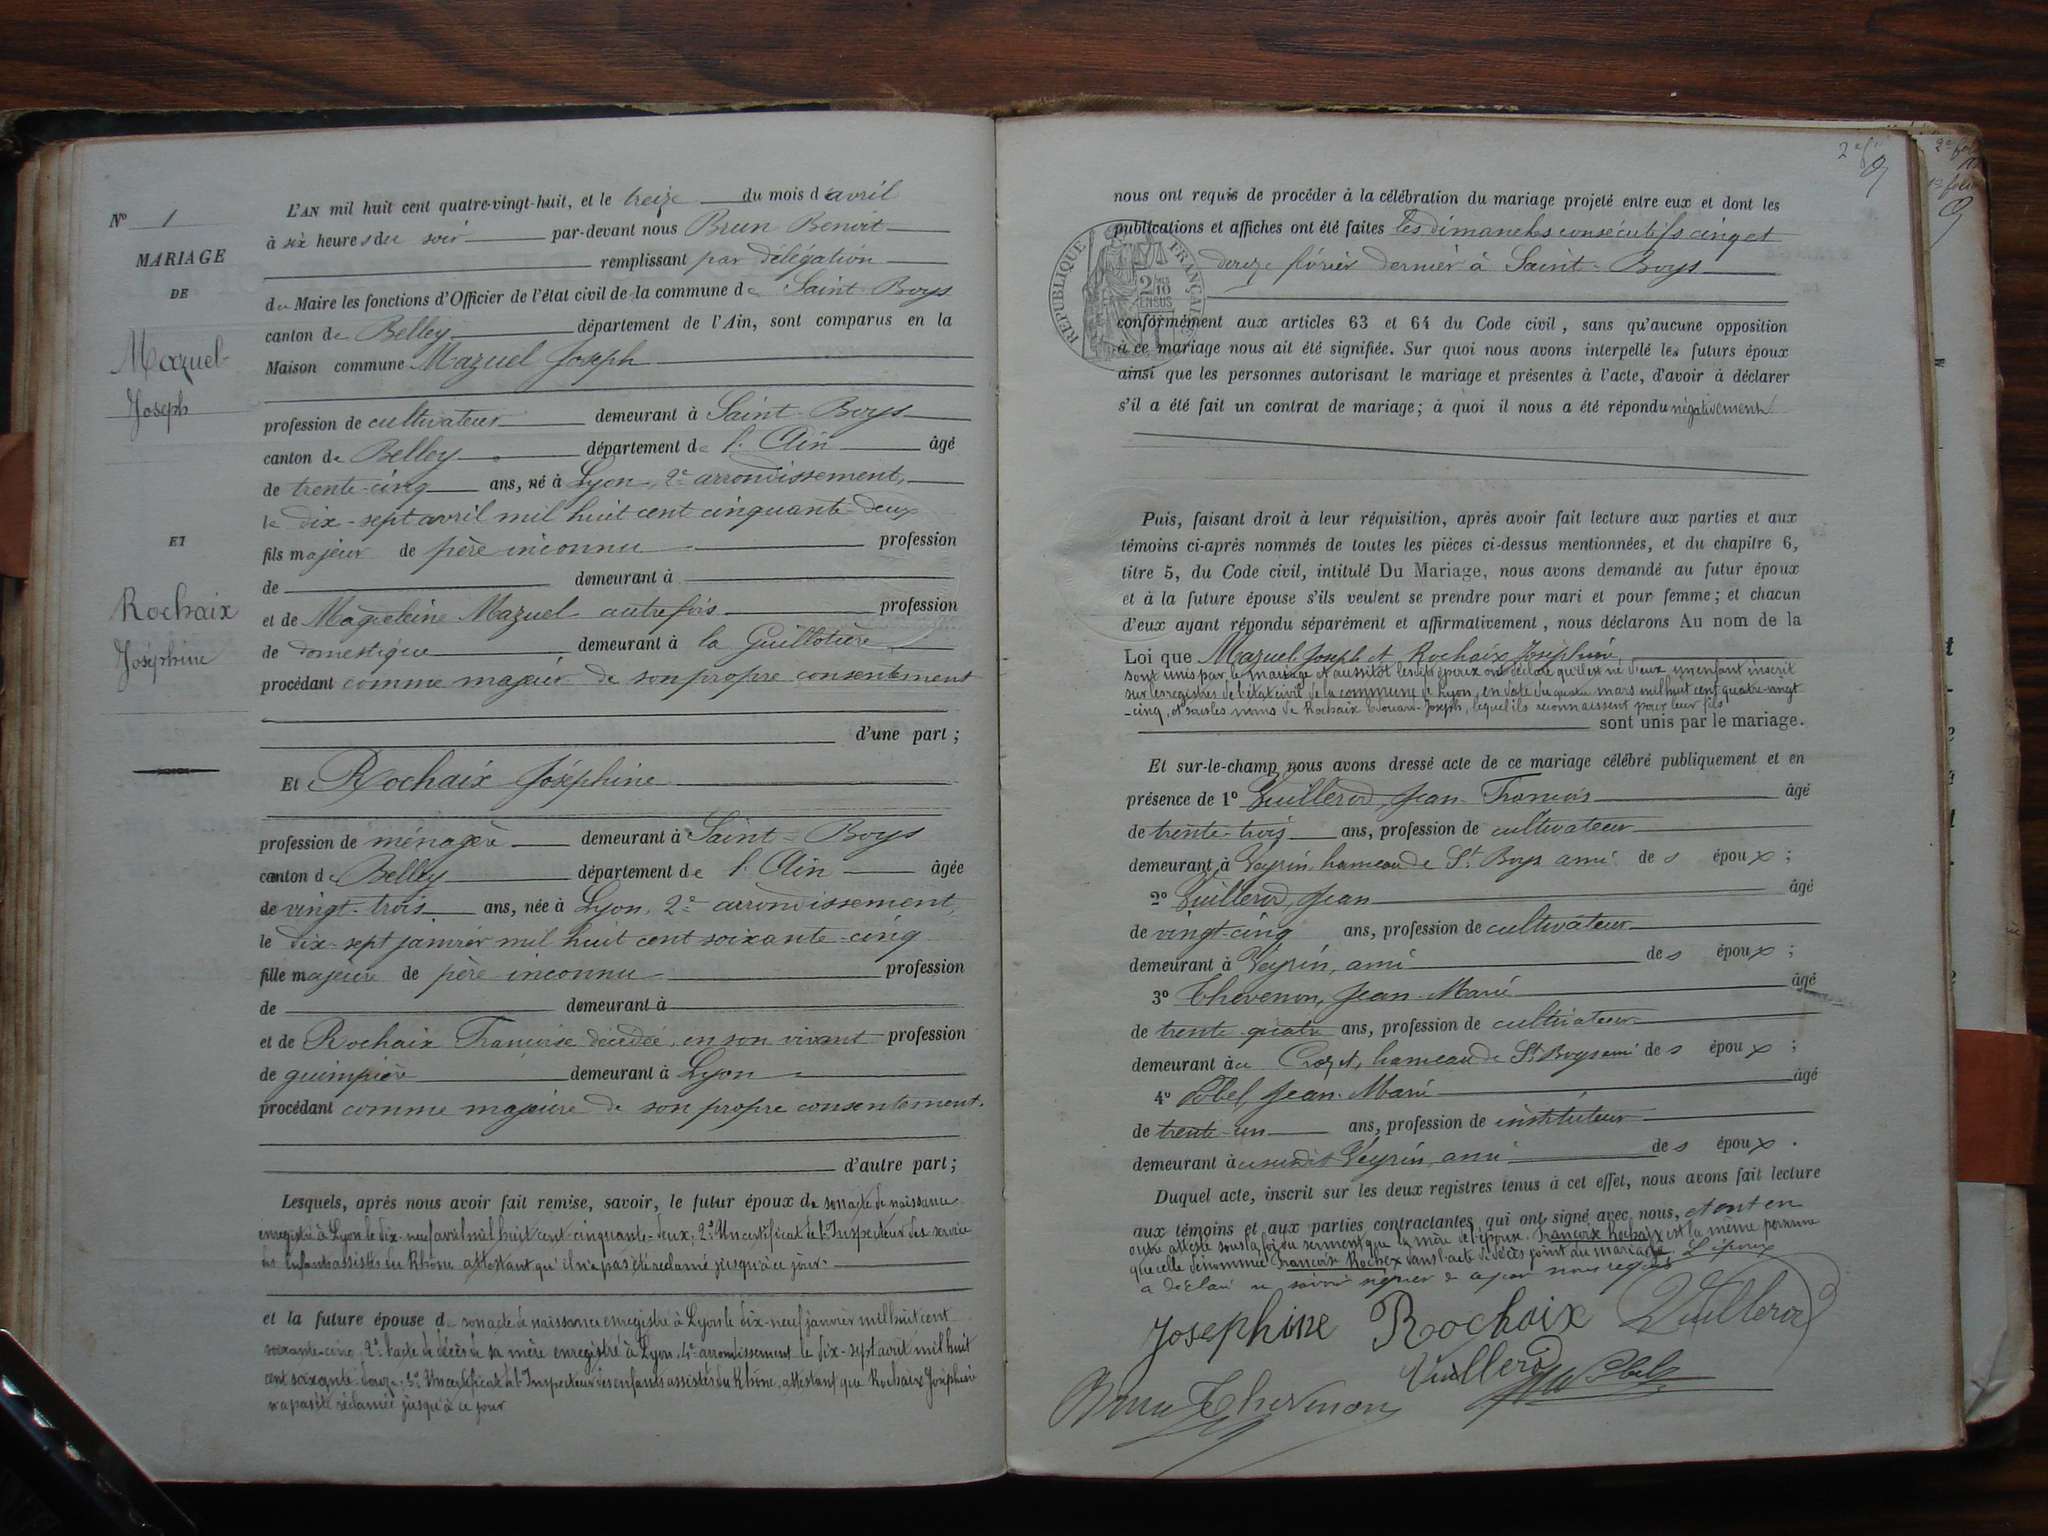 Nº 1
MARIAGE
DE
Mazuel
Joseph
ET
Rochaix
Joséphine
L'AN mil huit cent quatre-vingt-huit, et le treize du mois d'avril
à six heures du soir par-devant nous Brun Benoit
remplissant par délégation
du Maire les fonctions d'Officier de l'état civil de la commune de Saint-Boys
canton de Belley département de l'Ain, sont comparus en la
Maison commune Mazuel Joseph
profession de cultivateur demeurant à Saint-Boys
canton de Belley département de l'Ain âgé
de trente-cinq ans, né à Lyon, 2e arrondissement,
le dix-sept avril mil huit cent cinquante-deux
fils majeur de père inconnu profession
de demeurant à
et de Magdeleine Mazuel autrefois profession
de domestique demeurant à la Guillotière
procédant comme majeur de son propre consentement
d'une part ;
Et Rochaix Joséphine
profession de ménagère demeurant à Saint-Boys
canton de Belley département de l'Ain âgée
de vingt-trois ans, née à Lyon, 2e arrondissement,
le dix-sept janvier mil huit cent soixante-cinq
fille majeure de père inconnu profession
de demeurant à
et de Rochaix Françoise décédée, en son vivant profession
de guimpière demeurant à Lyon
procédant comme majeure de son propre consentement.
d'autre part ;
Lesquels, après nous avoir fait remise, savoir, le futur époux de son acte de naissance
enregistré à Lyon le dix-neuf avril mil huit cent cinquante-deux; 2º Un certificat de l'Inspecteur des service
des Enfants assistés du Rhône attestant qu'il n'a pas été réclamé jusqu'à ce jour.
et la future épouse de son acte de naissance enregistré à Lyon le dix-neuf janvier mil huit cent
soixante-cinq, 2º l'acte de décès de sa mère enregistré à Lyon, 4e arrondissement le dix-sept avril mil huit
cent soixante-douze, 3º Un certificat de l'Inspecteur des enfants assistés du Rhône, attestant que Rochaix Joséphine
n'a pas été réclamée jusqu'à ce jour
2e f.
nous ont requis de procéder à la célébration du mariage projeté entre eux et dont les
publications et affiches ont été faites les dimanches consécutifs cinq et
douze février dernier à Saint-Boys
REPUBLIQUE FRANÇAISE
2
10
EN SUS
conformément aux articles 63 et 64 du Code civil, sans qu'aucune opposition
à ce mariage nous ait été signifiée. Sur quoi nous avons interpellé les futurs époux
ainsi que les personnes autorisant le mariage et présentes à l'acte, d'avoir à déclarer
s'il a été fait un contrat de mariage; à quoi il nous a été répondu négativement
Puis, faisant droit à leur réquisition, après avoir fait lecture aux parties et aux
témoins ci-après nommés de toutes les pièces ci-dessus mentionnées, et du chapitre 6,
titre 5, du Code civil, intitulé Du Mariage, nous avons demandé au futur époux
et à la future épouse s'ils veulent se prendre pour mari et pour femme; et chacun
d'eux ayant répondu séparément et affirmativement, nous déclarons Au nom de la
Loi que Mazuel Joseph et Rochaix Joséphine
sont unis par le mariage et aussitôt lesdits époux ont déclaré qu'il est né d'eux un enfant inscrit
sur les registres de l'état civil de la commune de Lyon, en date du quatre mars mil huit cent quatre-vingt
-cinq, et sous les noms de Rochaix Edouard-Joseph, lequel ils reconnaissent pour leur fils
sont unis par le mariage.
Et sur-le-champ nous avons dressé acte de ce mariage célébré publiquement et en
présence de 1º Vuillerod, Jean-François âgé
de trente-trois ans, profession de cultivateur
demeurant à Veyrin, hameau de St Boys ami des époux ;
2º Vuillerod, Jean âgé
de vingt-cinq ans, profession de cultivateur
demeurant à Veyrin, ami des époux ;
3º Thevenon, Jean-Marie âgé
de trente-quatre ans, profession de cultivateur
demeurant au Crozet, hameau de St Boys ami des époux ;
4º Jean-Marie âgé
de trente-un ans, profession de instituteur
demeurant à susdit Veyrin, ami des époux.
Duquel acte, inscrit sur les deux registres tenus à cet effet, nous avons fait lecture
aux témoins et aux parties contractantes qui ont signé avec nous, et ont en
outre attesté sous la foi du serment que la mère de l'épouse, Françoise Rochaix est la même personne
que celle dénommée Françoise Rochex dans l'acte de décès joint au mariage. L'époux
a déclaré ne savoir signer de ce par nous requis
Josephine Rochaix Vuillerod
Vuillerod
Brun Thevenon